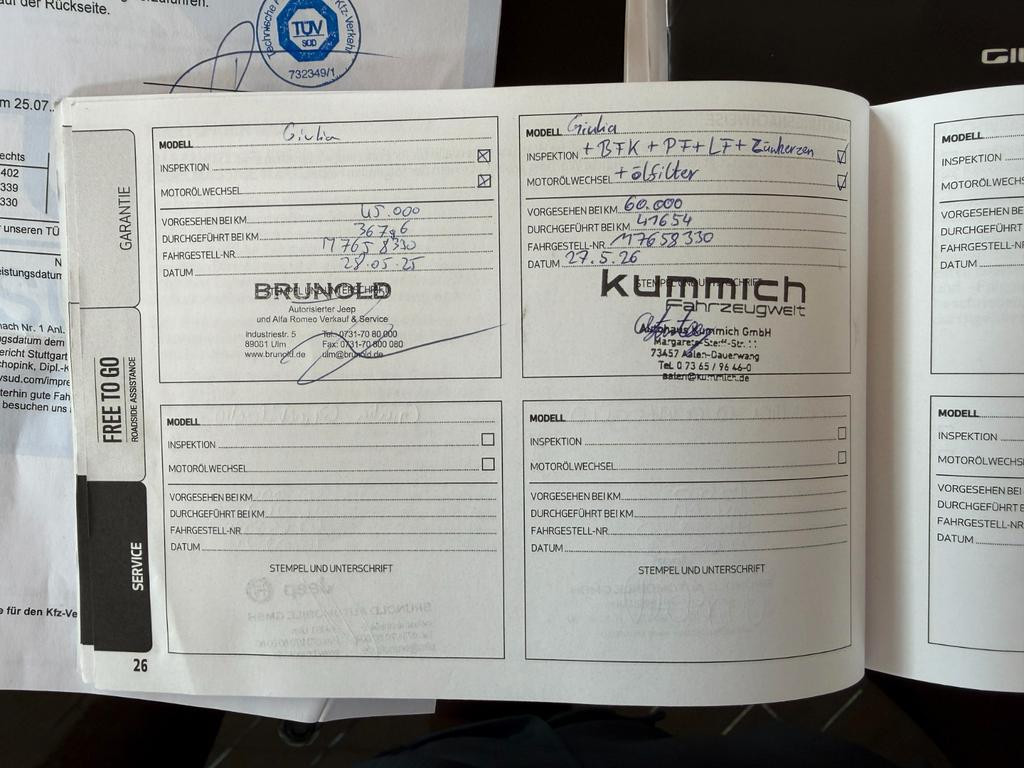 auf der Rückseite.
Kfz-Verkehr
TÜV
SÜD
732349/1
m 25.07.
echts
402
339
330
r unseren TÜ
N
eistungsdatum
nach Nr. 1 Anl.
ngsdatum dem
ericht Stuttgart
chopink, Dipl.-K
vsud.com/impre
terhin gute Fah
besuchen uns
e für den Kfz-Ve
GIU
GARANTIE
FREE TO GO
ROADSIDE ASSISTANCE
SERVICE
26
MODELL Giulia
INSPEKTION
MOTORÖLWECHSEL
VORGESEHEN BEI KM 45.000
DURCHGEFÜHRT BEI KM 36796
FAHRGESTELL-NR M7658330
DATUM 28.05.25
STEMPEL UND UNTERSCHRIFT
BRUNOLD
Autorisierter Jeep
und Alfa Romeo Verkauf & Service
Industriestr. 5 Tel. 0731-70 80 000
89081 Ulm Fax: 0731-70 800 080
www.brunold.de ulm@brunold.de
MODELL Giulia
INSPEKTION + BFK + PF + LF + Zünkerzen
MOTORÖLWECHSEL + ölfilter
VORGESEHEN BEI KM 60.000
DURCHGEFÜHRT BEI KM 41654
FAHRGESTELL-NR M7658330
DATUM 27.5.26
STEMPEL UND UNTERSCHRIFT
Kummich
Fahrzeugwelt
Autohaus Kummich GmbH
Margarete-Steiff-Str. 11
73457 Aalen-Dauerwang
Tel. 0 73 65 / 96 46-0
aalen@kummich.de
MODELL
INSPEKTION
MOTORÖLWECHSEL
VORGESEHEN BEI KM
DURCHGEFÜHRT BEI KM
FAHRGESTELL-NR
DATUM
STEMPEL UND UNTERSCHRIFT
MODELL
INSPEKTION
MOTORÖLWECHSEL
VORGESEHEN BEI KM
DURCHGEFÜHRT BEI KM
FAHRGESTELL-NR.
DATUM
STEMPEL UND UNTERSCHRIFT
MODELL
INSPEKTION
MOTORÖLWECHS
VORGESEHEN B
DURCHGEFÜHRT
FAHRGESTELL-N
DATUM
MODELL
INSPEKTION
MOTORÖLWECHS
VORGESEHEN BE
DURCHGEFÜHRT E
FAHRGESTELL-NR
DATUM